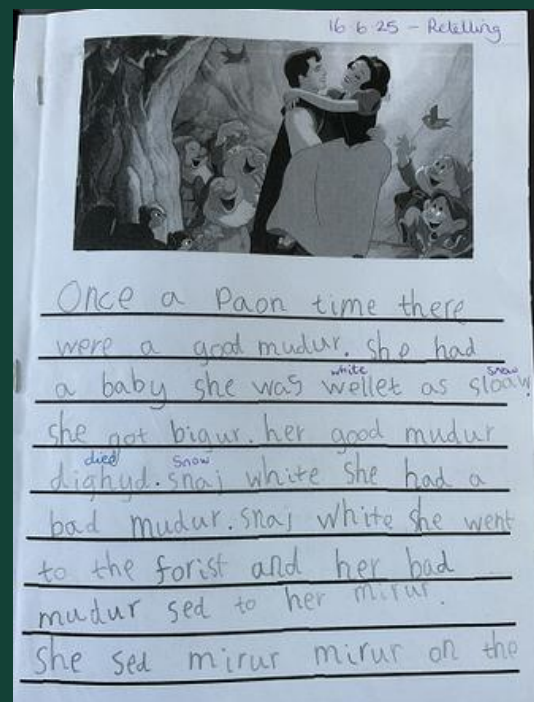 16 6 25 - Retelling
Once a Paon time there
were a good mudur. she had
white snow
a baby she was wellet as sloaw.
she got bigur. her good mudur
died snow
dighyd. snaj white she had a
bad mudur. snaj white she went
to the forist and her bad
mudur sed to her mirur.
she sed mirur mirur on the